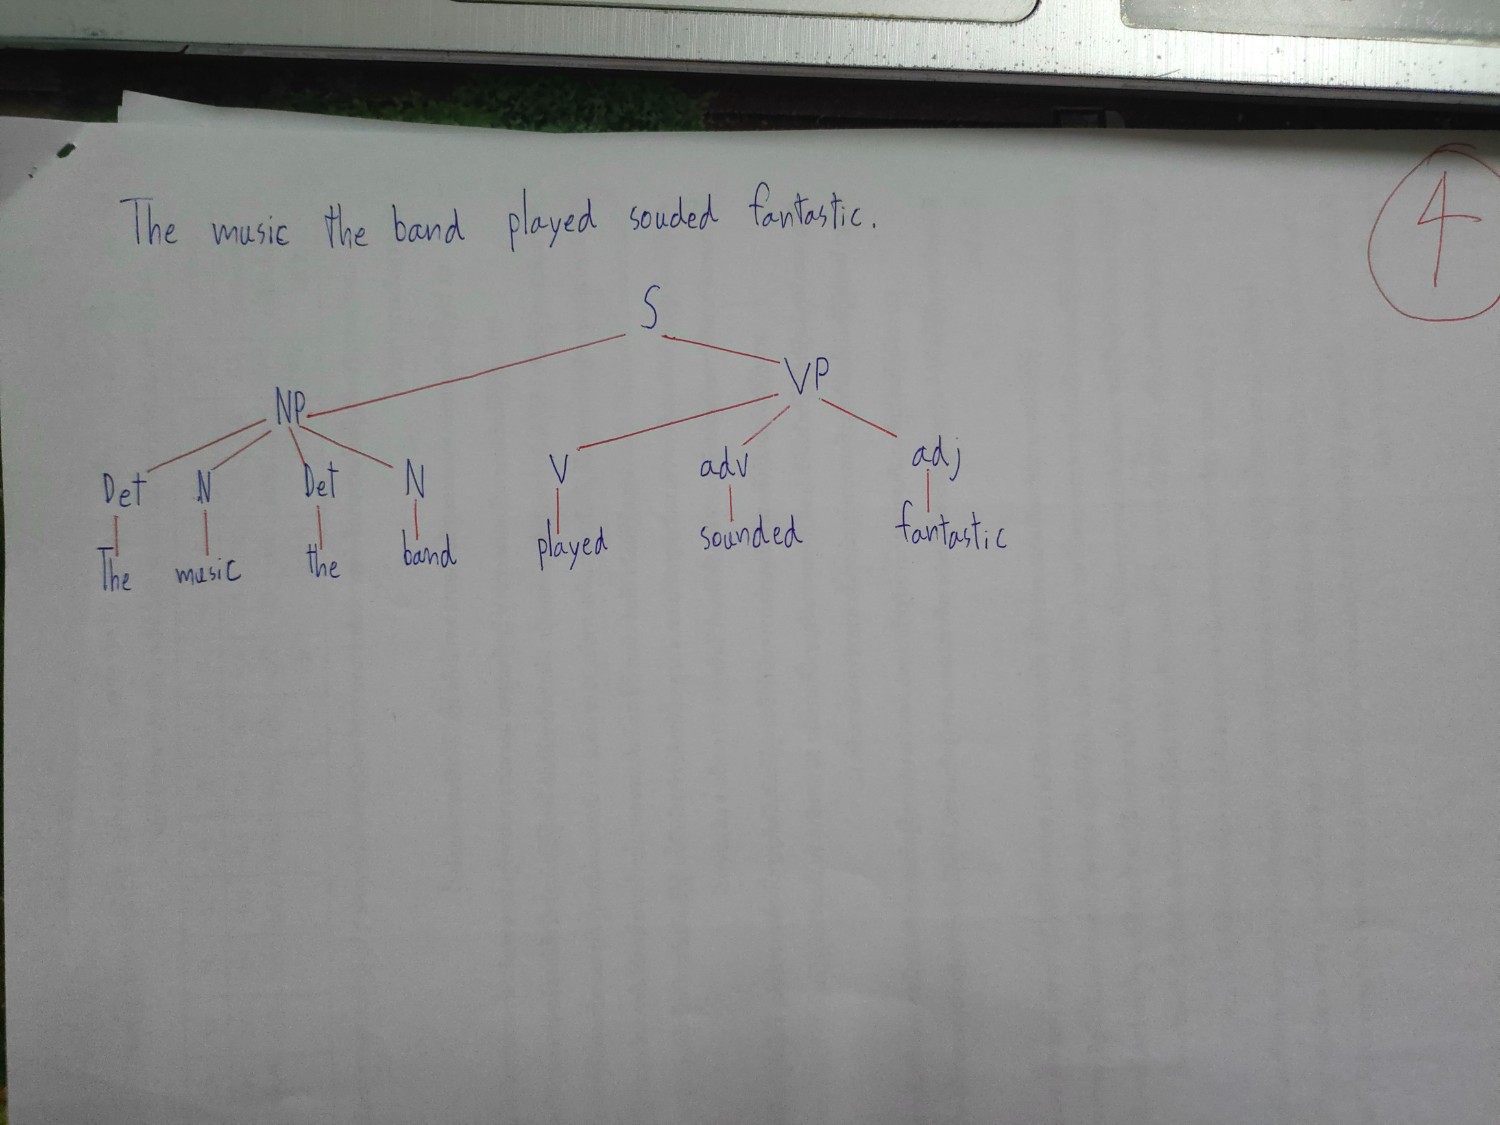 4
The music the band played souded fantastic.
S
VP
NP
Det N Det N V adv adj
The music the band played sounded fantastic